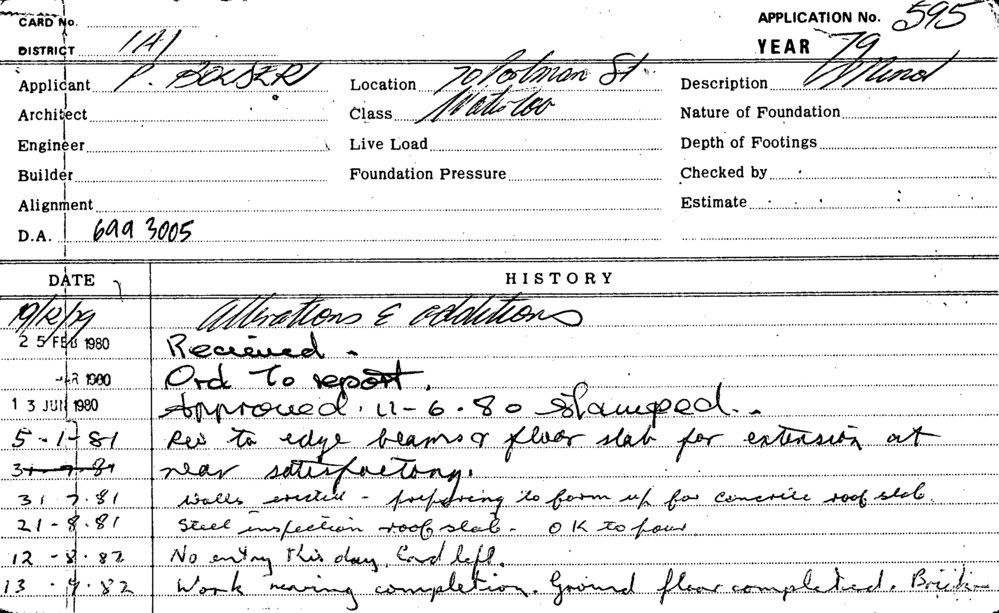 CARD No.
APPLICATION No. 595
DISTRICT 1A1
YEAR 79
Applicant P. BOLSER Location 70 Portman St. Description Mend
Architect Class Waterloo Nature of Foundation
Engineer Live Load Depth of Footings
Builder Foundation Pressure Checked by
Alignment Estimate
D.A. 699 3005
DATE HISTORY
19/12/79 Alterations & additions
25 FEB 1980 Recieved.
MAR 1980 Ord To report.
13 JUN 1980 Approved. 11-6.80 stamped.
5-1-81 Reo to edge beams & floor slab for extension at
31-7-81 rear satisfactory.
31 7.81 Walls erected - preparing to form up for concrete roof slab.
21-8.81 Steel inspection roof slab. OK to pour
12-8.82 No entry this day. Card left.
13.9.82 Work nearing completion. Ground floor completed. Brick-